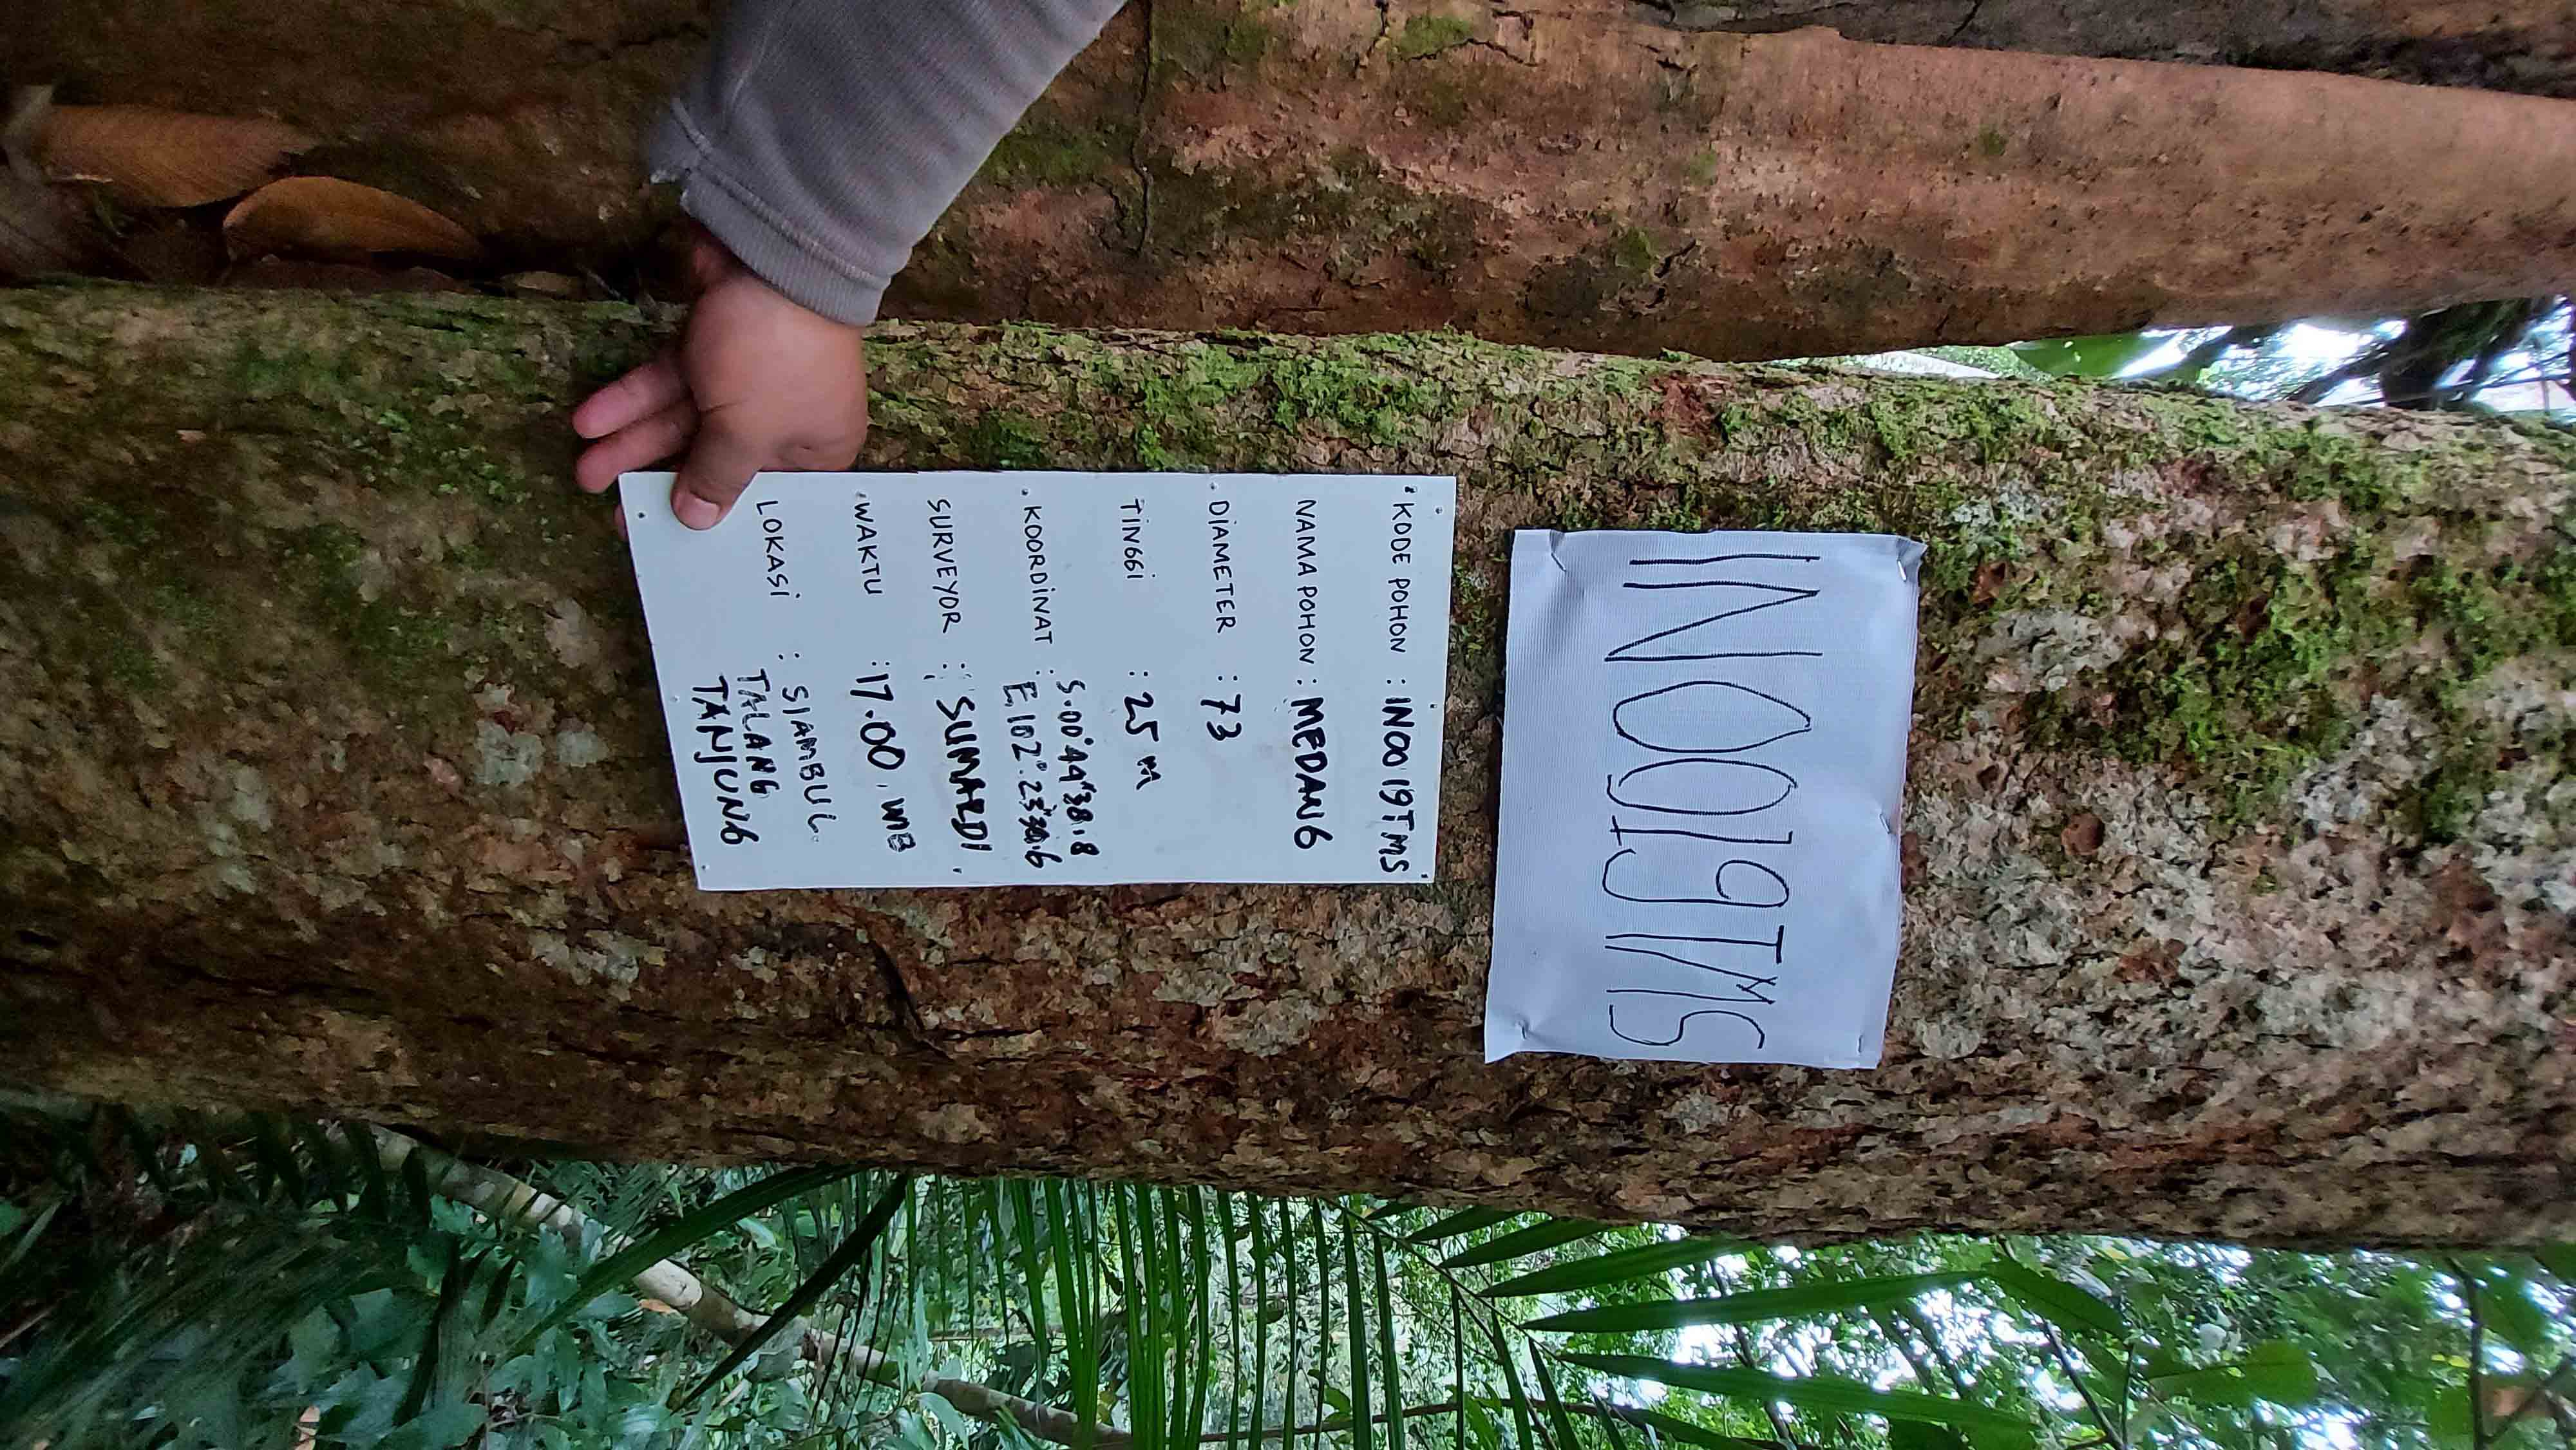 INOO19TMS
KODE POHON : INOO19TMS
NAMA POHON : MEDANG
DIAMETER : 73
TINGGI : 25 M
S.00°44"38.8
KOORDINAT :
E.102°.23"30.6
SURVEYOR : SUMARDI
WAKTU : 17.00. WIB
LOKASI : SIAMBUL
TALANG
TANJUNG